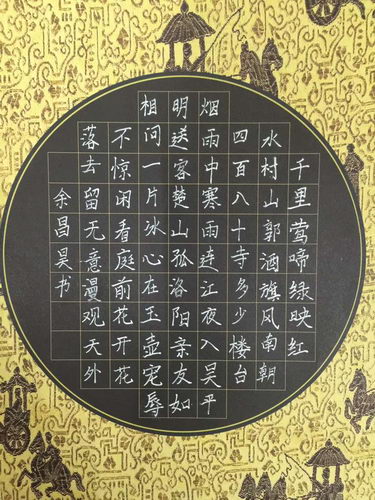 千里莺啼绿映红
水村山郭酒旗风南朝
四百八十寺多少楼台
烟雨中寒雨连江夜入吴平
明送客楚山孤洛阳亲友如
相问一片冰心在玉壶宠辱
不惊闲看庭前花开花
落去留无意漫观天外
余昌昊书